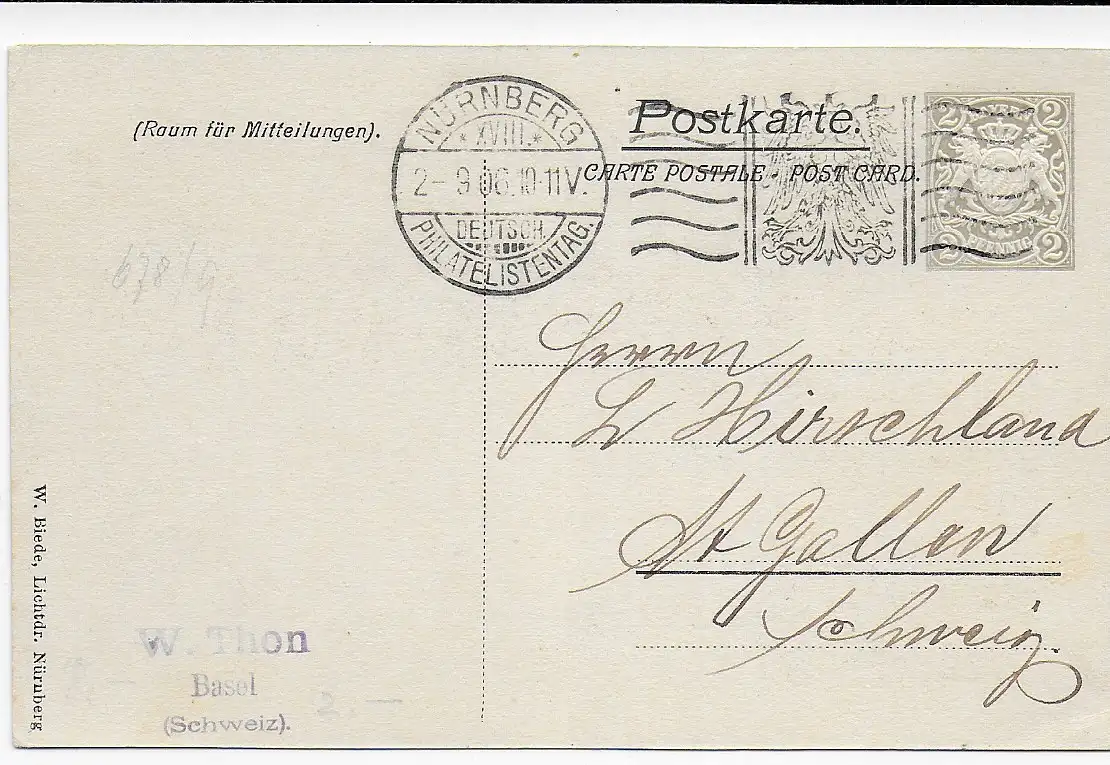 (Raum für Mitteilungen).
NÜRNBERG
* XVIII. *
2-9 06.10-11V.
DEUTSCH.
PHILATELISTENTAG.
Postkarte.
CARTE POSTALE - POST CARD.
2 BAYERN 2
2 PFENNIG 2
Herrn
L Hirschland
St Gallen
Schweiz
W. Biede, Lichtdr. Nürnberg
W. Thon
Basel
(Schweiz).
2.—